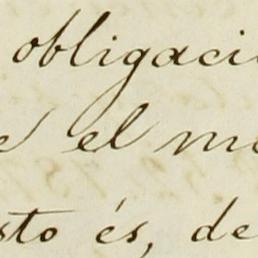 obligaci
e el m
sto és, de